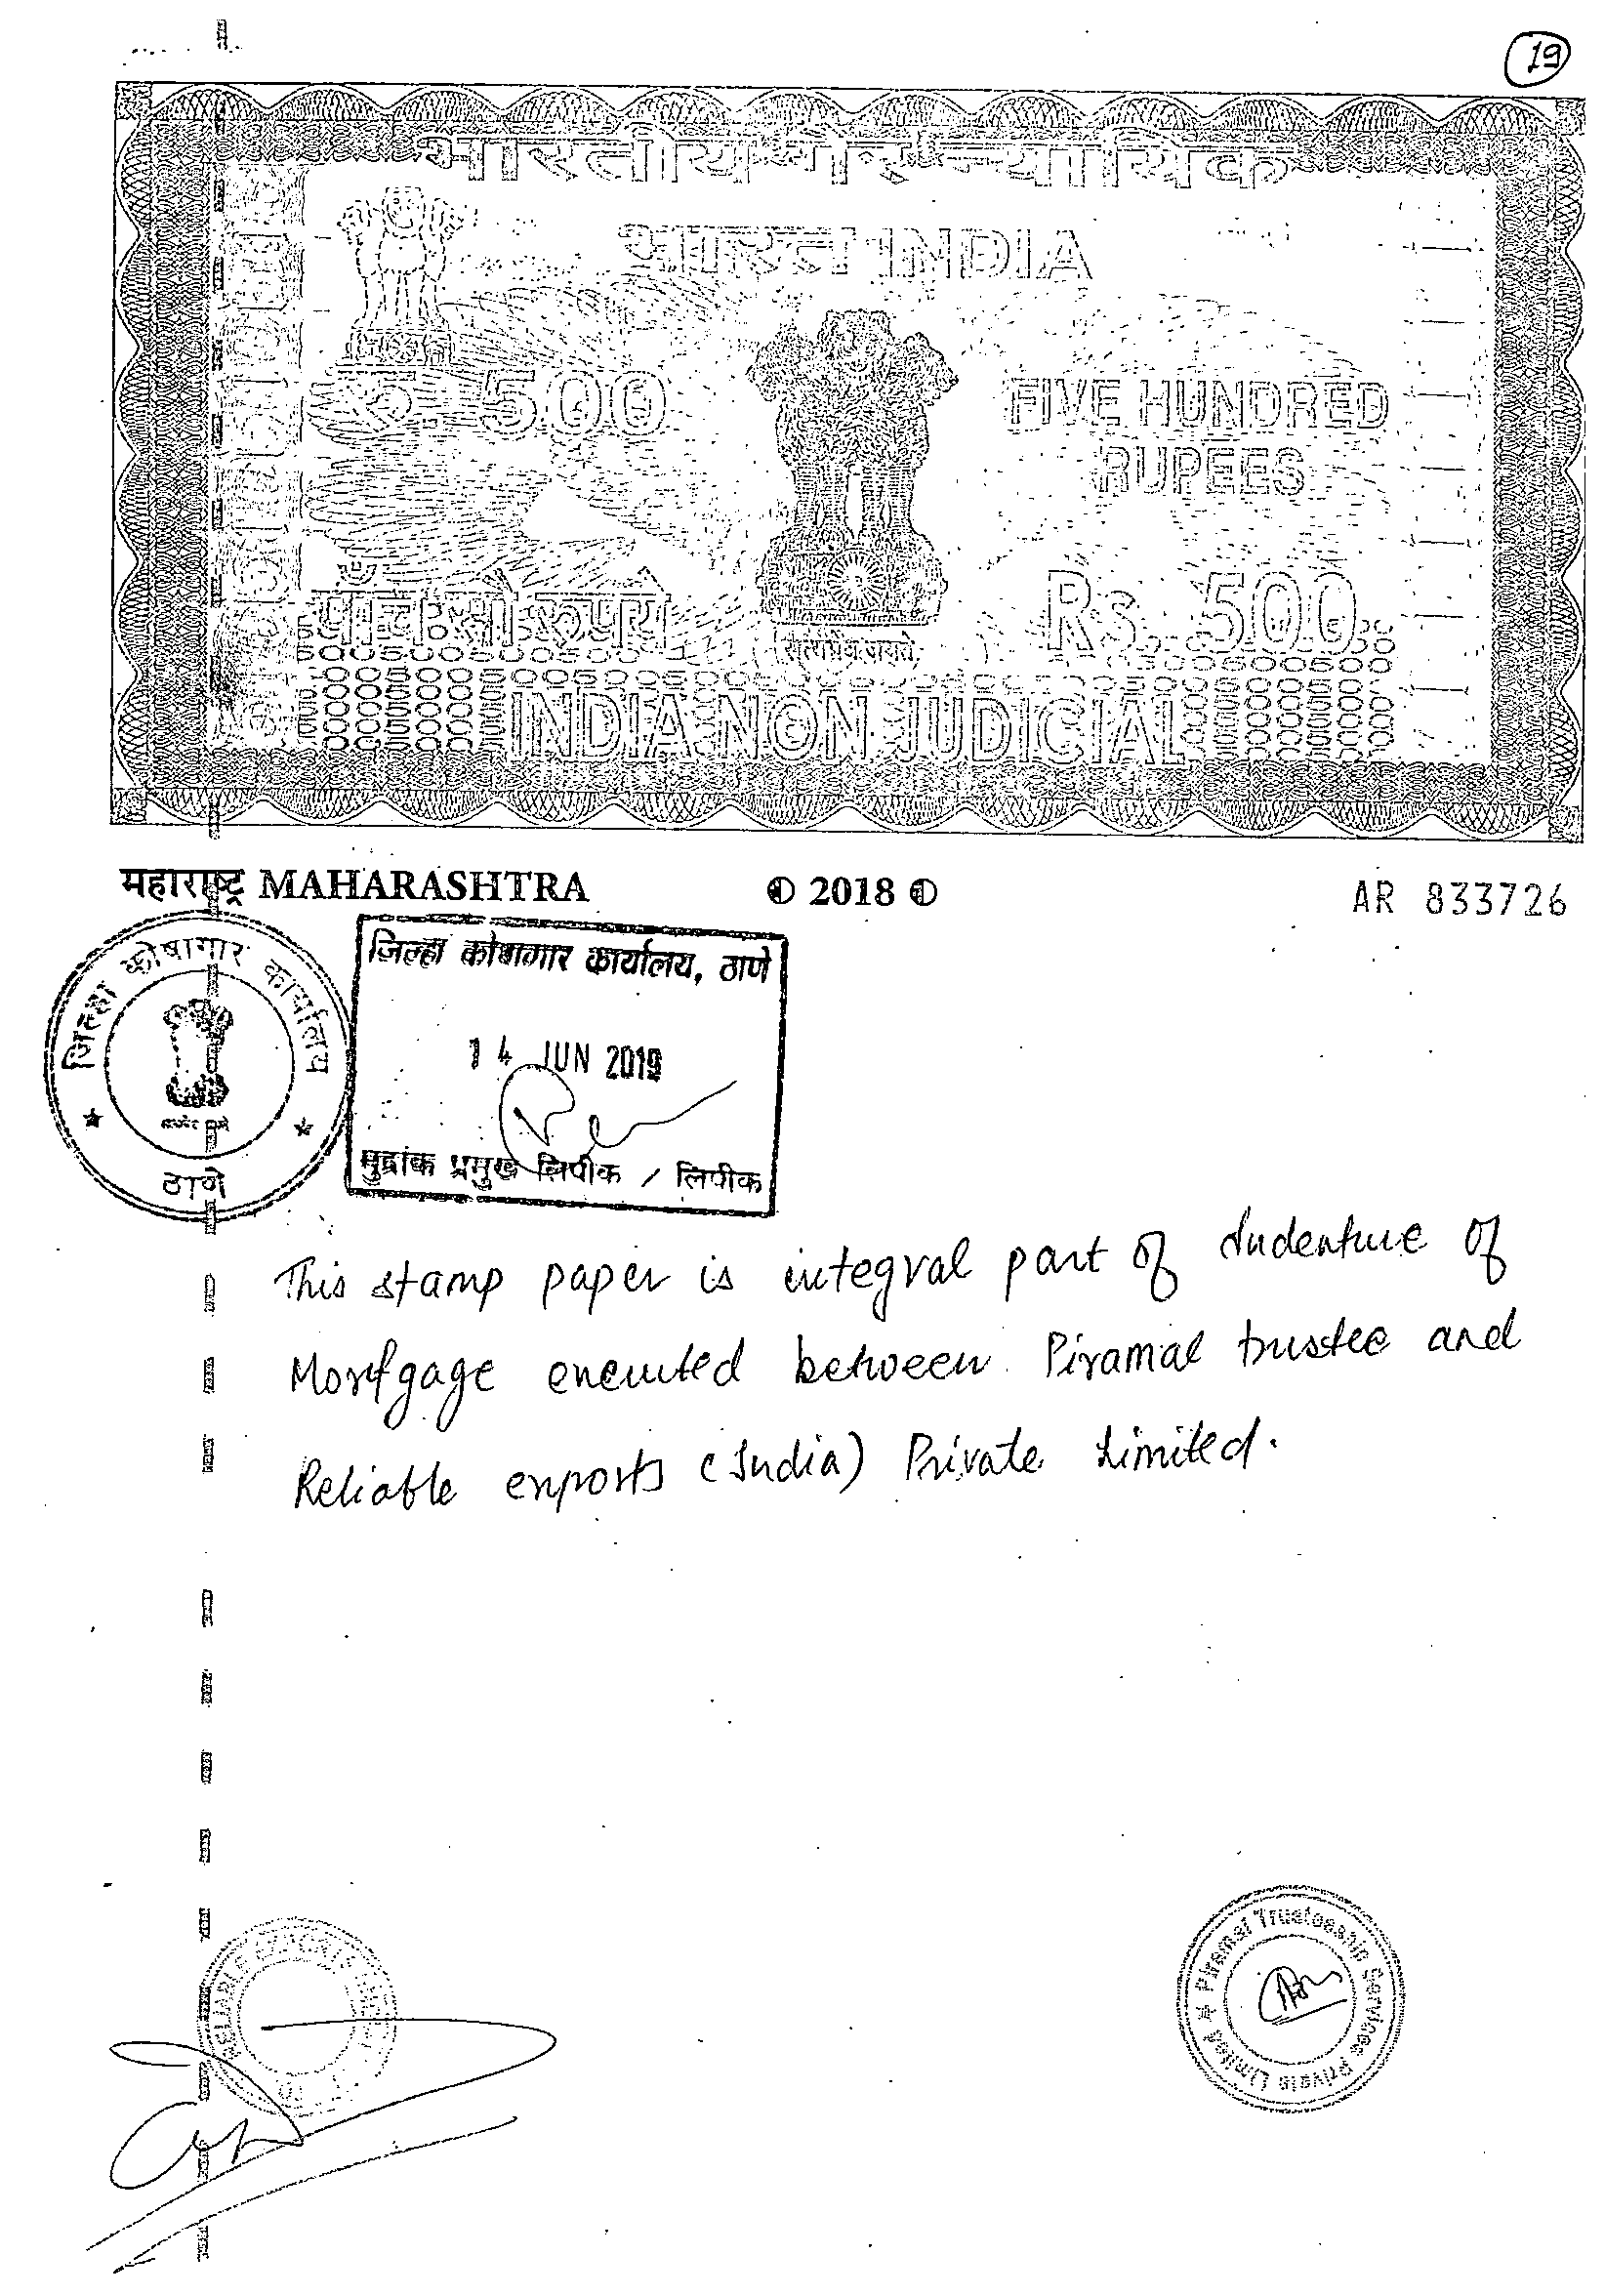 19
भारतीय गैर न्यायिक
भारत INDIA
रु. 500
FIVE HUNDRED
RUPEES
पाँच सौ रुपये
Rs. 500
सत्यमेव जयते
INDIA NON JUDICIAL
महाराष्ट्र MAHARASHTRA
2018
AR 833726
जिल्हा कोषागार कार्यालय
ठाणे
जिल्हा कोषागार कार्यालय, ठाणे
14 JUN 2019
मुद्रांक प्रमुख लिपीक / लिपीक
This stamp paper is integral part of Indenture of
Mortgage executed between Piramal trustee and
Reliable exports (India) Private Limited.
RELIABLE EXPORTS
Piramal Trusteeship Services Private Limited